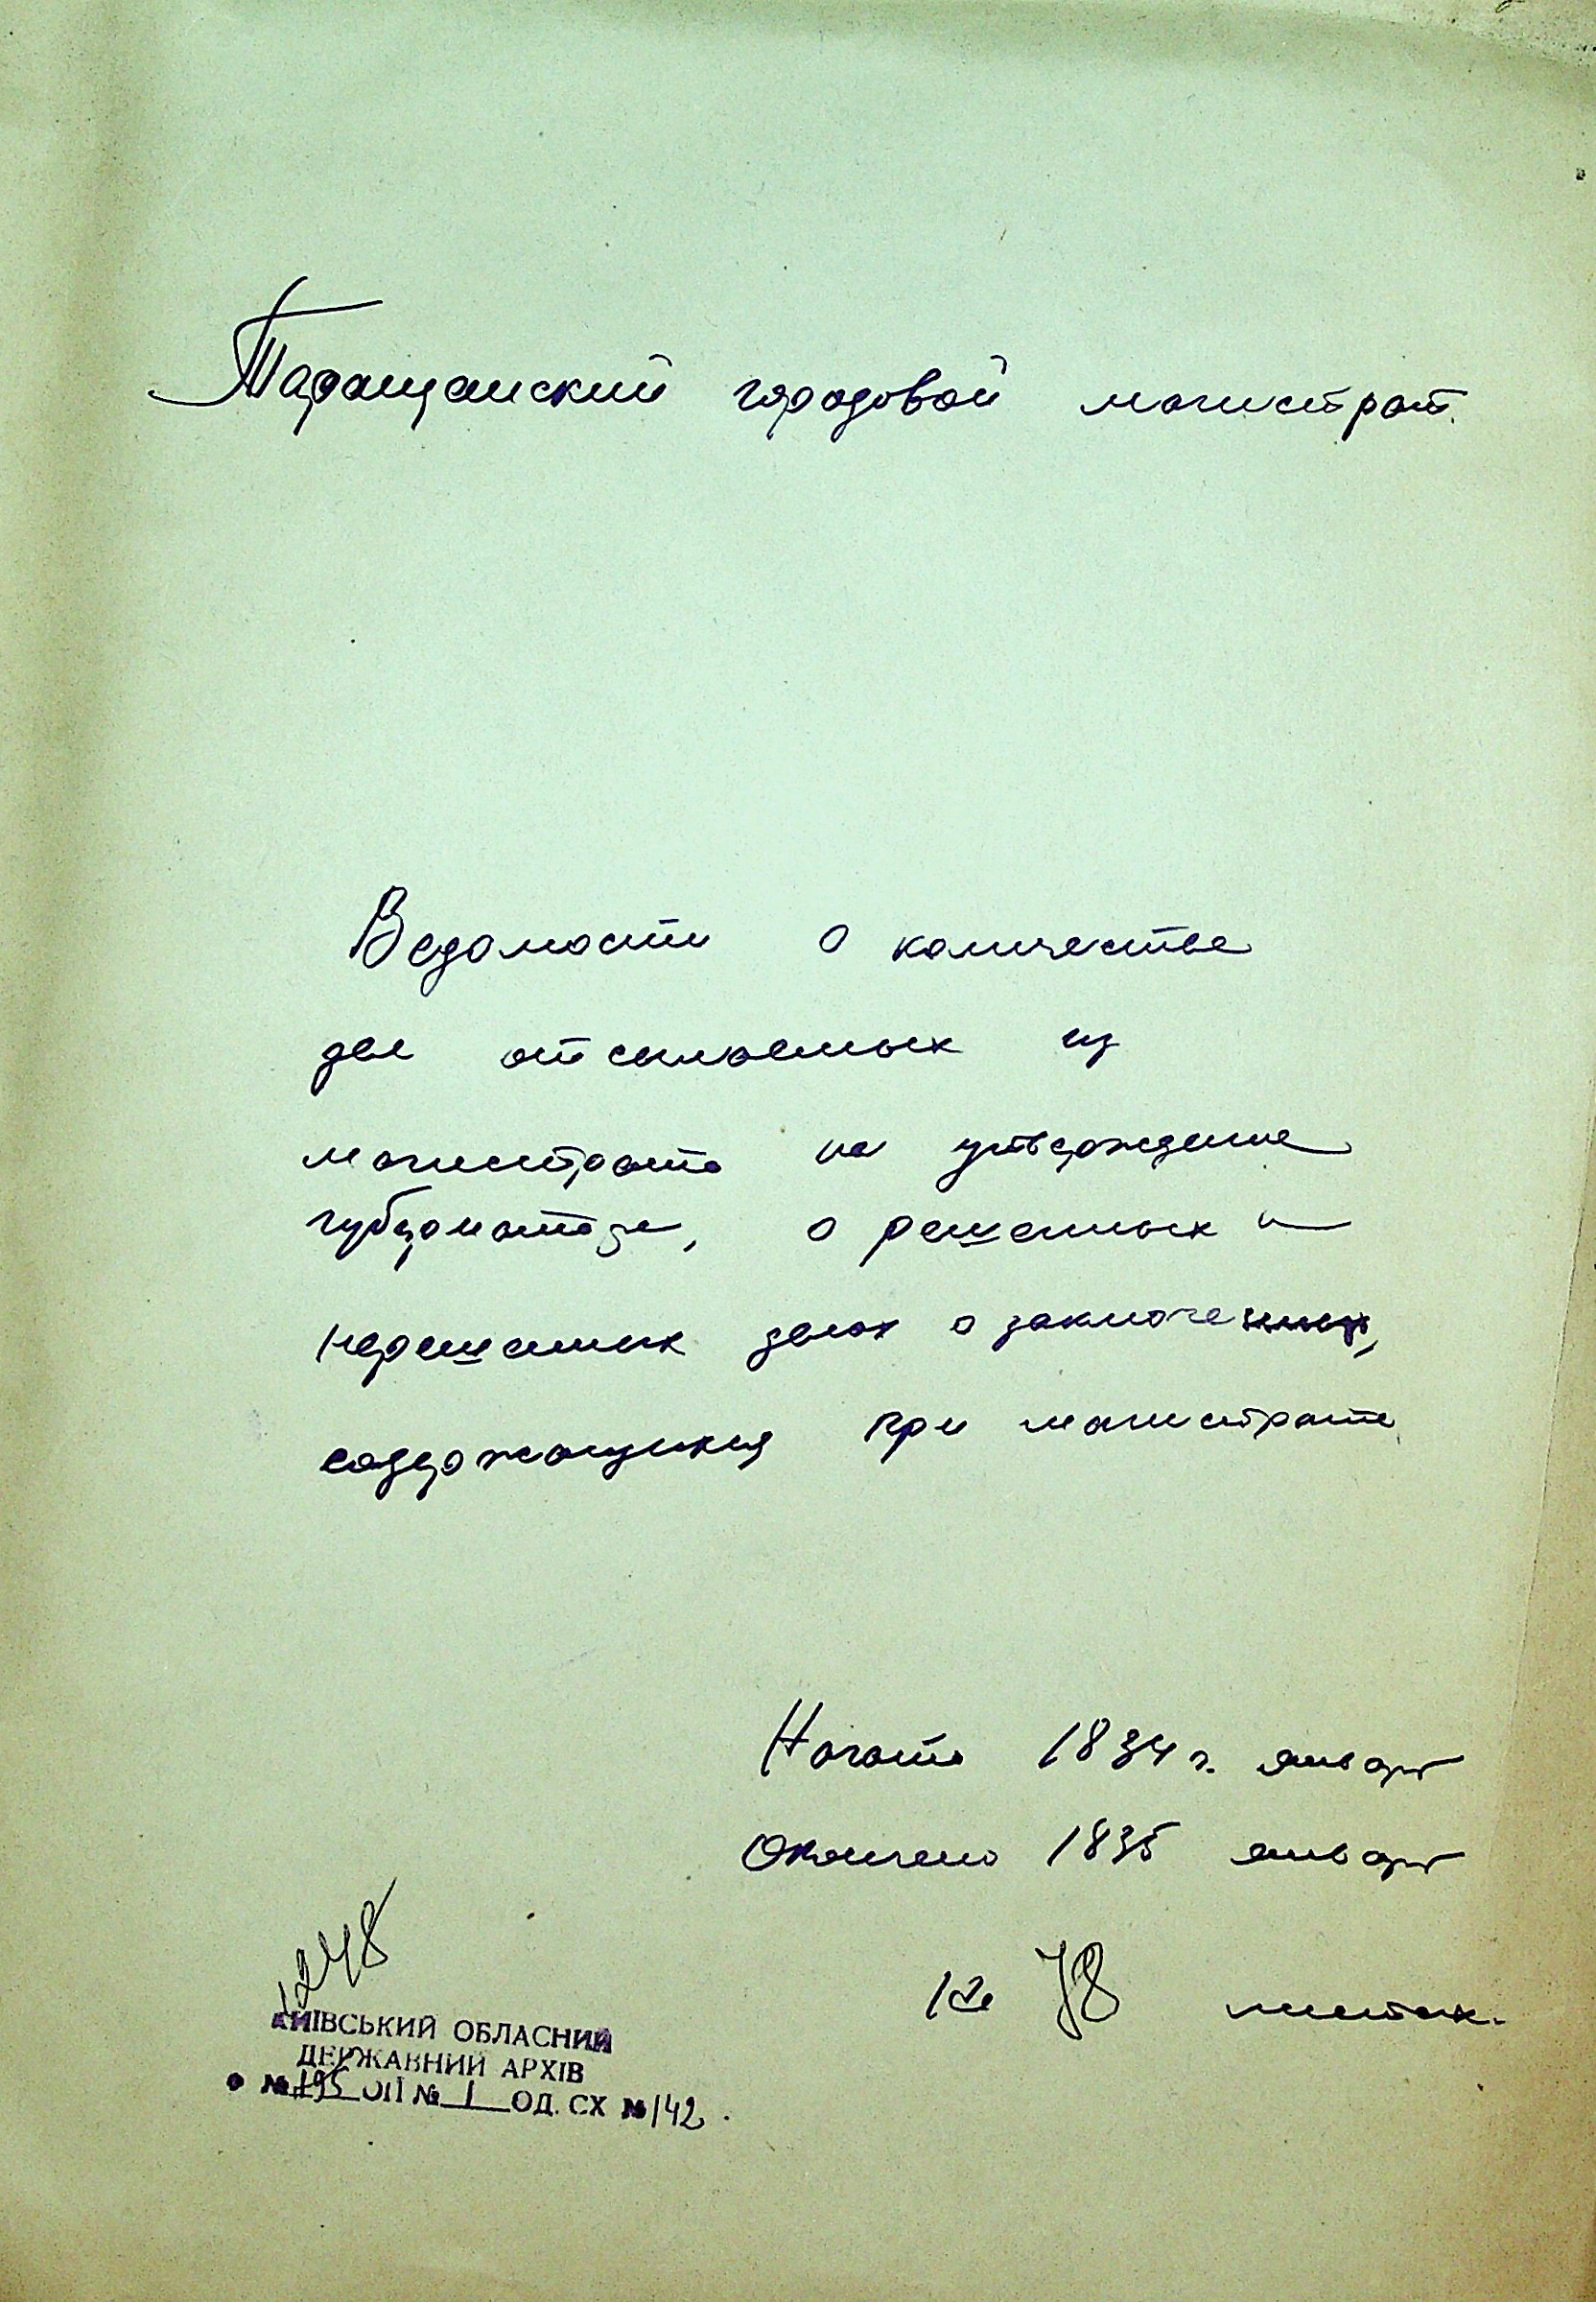 Таращанский городовой магистрат.
Ведомости о количестве
дел отсылаемых из
магистрата на утверждение
губернатора, о решенных и
нерешенных делах о заключенных,
содержащихся при магистрате
Начато 1834 г. январь
Окончено 1835 январь
на 78 листах.
1248
КИЇВСЬКИЙ ОБЛАСНИЙ
ДЕРЖАВНИЙ АРХІВ
№ 195 ОП № 1 ОД. СХ № 142